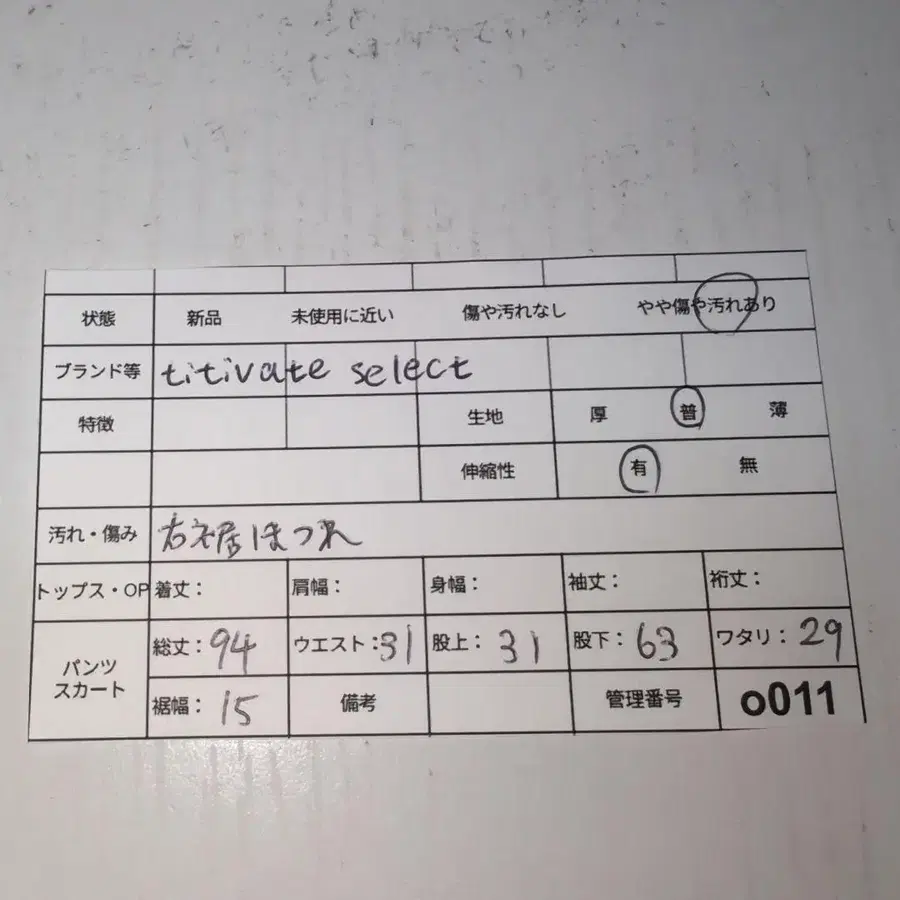 状態 新品 未使用に近い 傷や汚れなし やや傷や汚れあり
ブランド等 titivate select
特徴 生地 厚 普 薄
伸縮性 有 無
汚れ・傷み 右裾ほつれ
トップス・OP 着丈: 肩幅: 身幅: 袖丈: 裄丈:
パンツ スカート 総丈:94 ウエスト:31 股上:31 股下:63 ワタリ:29
裾幅:15 備考 管理番号 o011